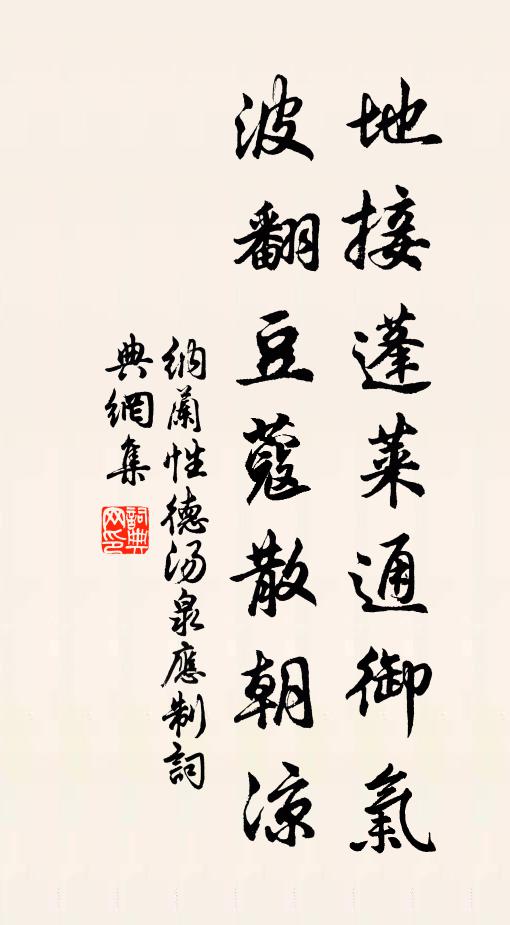 地接蓬萊通御氣
波翻豆蔻散朝涼
納蘭性德湯泉應制詞
典網集
詞典
网印